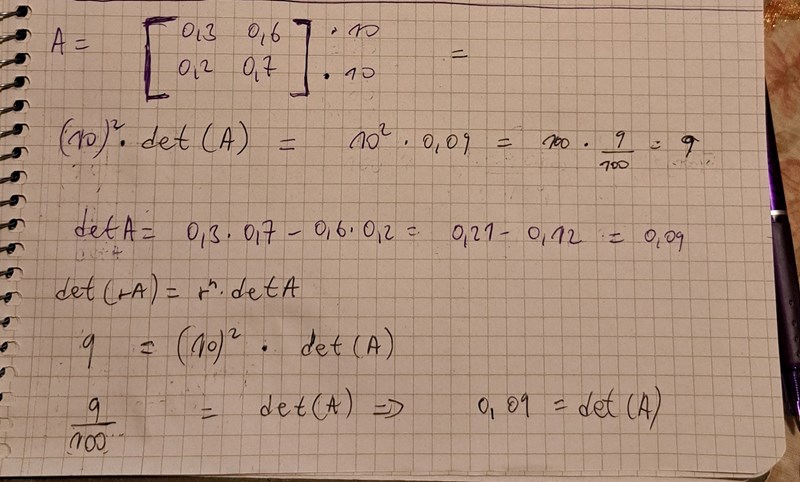 A = [ 0,3 0,6 ] · 10
[ 0,2 0,7 ] · 10 =
(10)² · det (A) = 10² · 0,09 = 100 · 9/100 = 9
det A = 0,3 · 0,7 - 0,6 · 0,2 = 0,21 - 0,12 = 0,09
det (rA) = rⁿ · det A
9 = (10)² · det (A)
9/100 = det (A) => 0,09 = det (A)